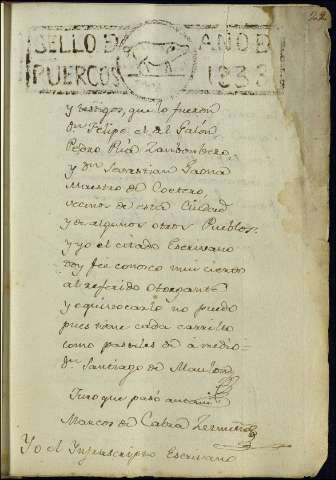 22
SELLO D AÑO D
PUERCOS 1833
y testigos, que lo fueron
dn Felipe el del Salón,
Pedro Pia
y dn Sevastian
Maestro de Coetero,
vecinos de esta Ciudad
y de algunos otros Pueblos.
y yo el citado Escrivano
doy feé conosco mui cierto
al referido otorgante
y equivocarlo no puedo
pues tiene cada carrillo
como pasteles de á medio
dn Santiago de
Juro que pasó ante mi
Marcos de Cabra
Yo el Infrascripto Escrivano